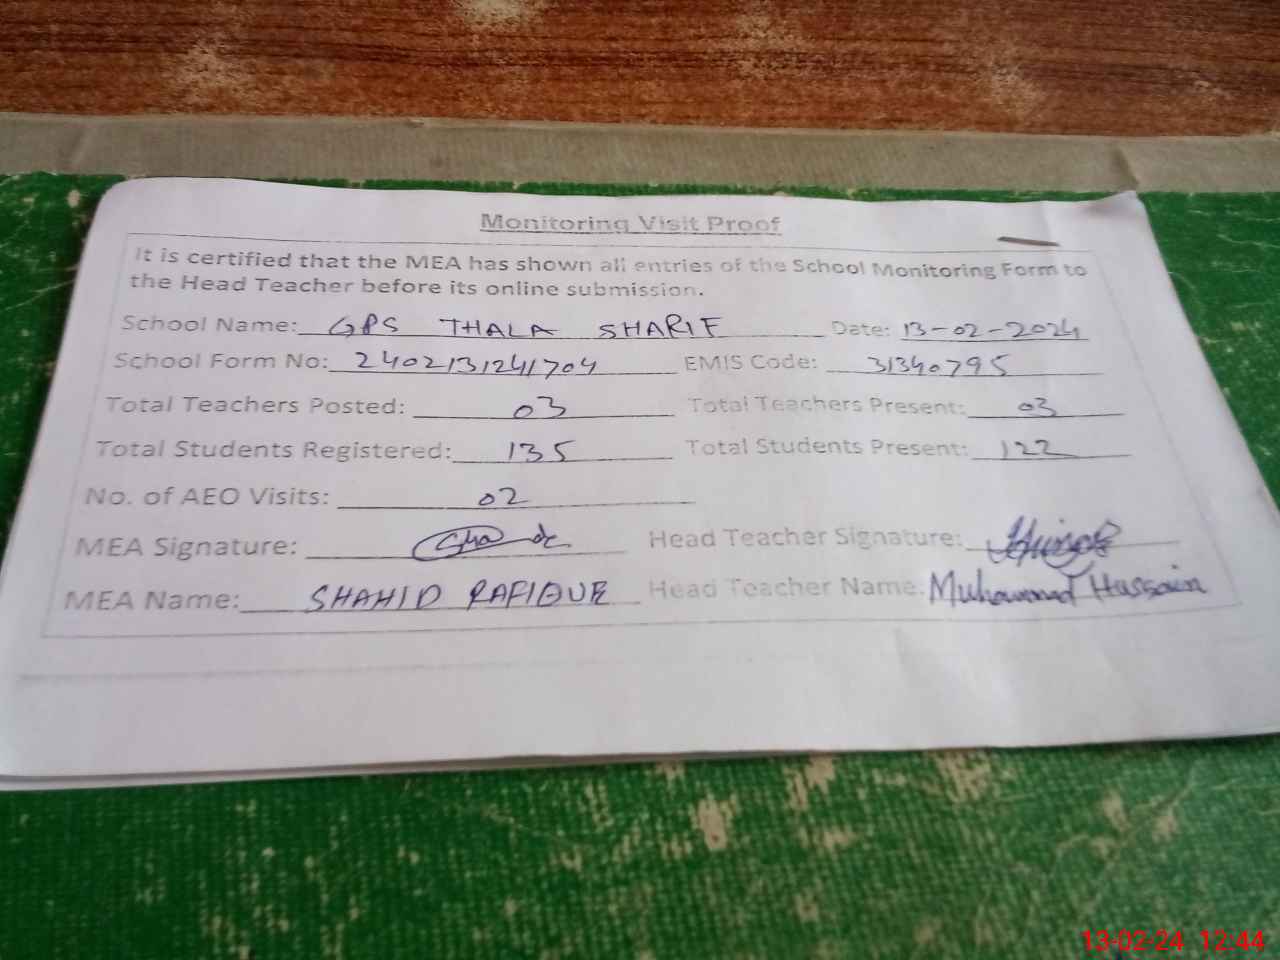 Monitoring Visit Proof
It is certified that the MEA has shown all entries of the School Monitoring Form to
the Head Teacher before its online submission.
School Name: GPS THALA SHARIF Date: 13-02-2024
School Form No: 2402131241704 EMIS Code: 31340795
Total Teachers Posted: 03 Total Teachers Present: 03
Total Students Registered: 135 Total Students Present: 122
No. of AEO Visits: 02
MEA Signature: Head Teacher Signature:
MEA Name: SHAHID RAFIQUE Head Teacher Name: Muhammad Hussain
13-02-24 12:44